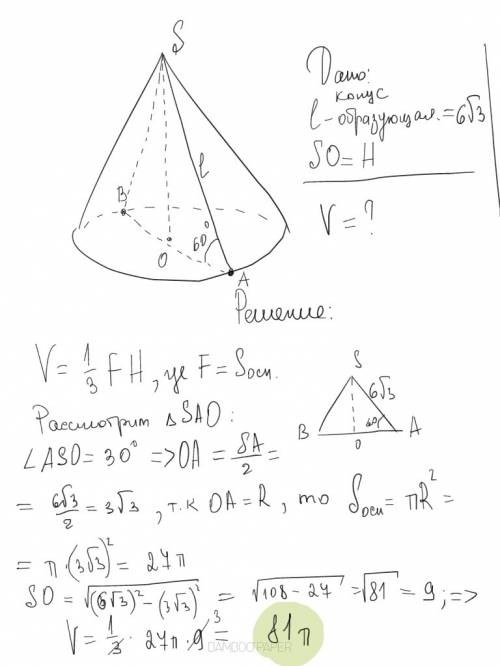 S
Дано:
конус
l - образующая. = 6√3
SO = H
V = ?
l
B
60°
O
A
Решение:
V = 1/3 FH, где F = Sосн.
S
6√3
60°
B O A
Рассмотрим Δ SAO:
∠ASO = 30° => OA = SA/2 =
= 6√3/2 = 3√3, т.к OA = R, то Sосн = πR² =
= π·(3√3)² = 27π
SO = √((6√3)² - (3√3)²) = √(108 - 27) = √81 = 9; =>
V = 1/3 · 27π · 9 ³ = 81π
BAMBOO PAPER